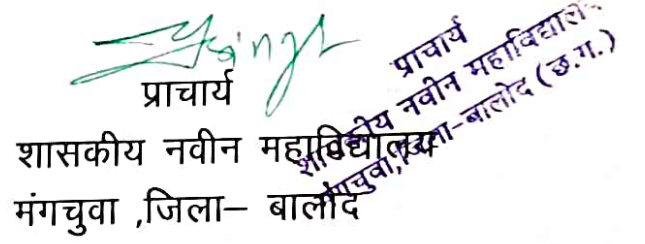 प्राचार्य
शासकीय नवीन महाविद्यालय
मंगचुवा ,जिला– बालोद
प्राचार्य
शासकीय नवीन महाविद्यालय
मंगचुवा,जिला-बालोद (छ.ग.)